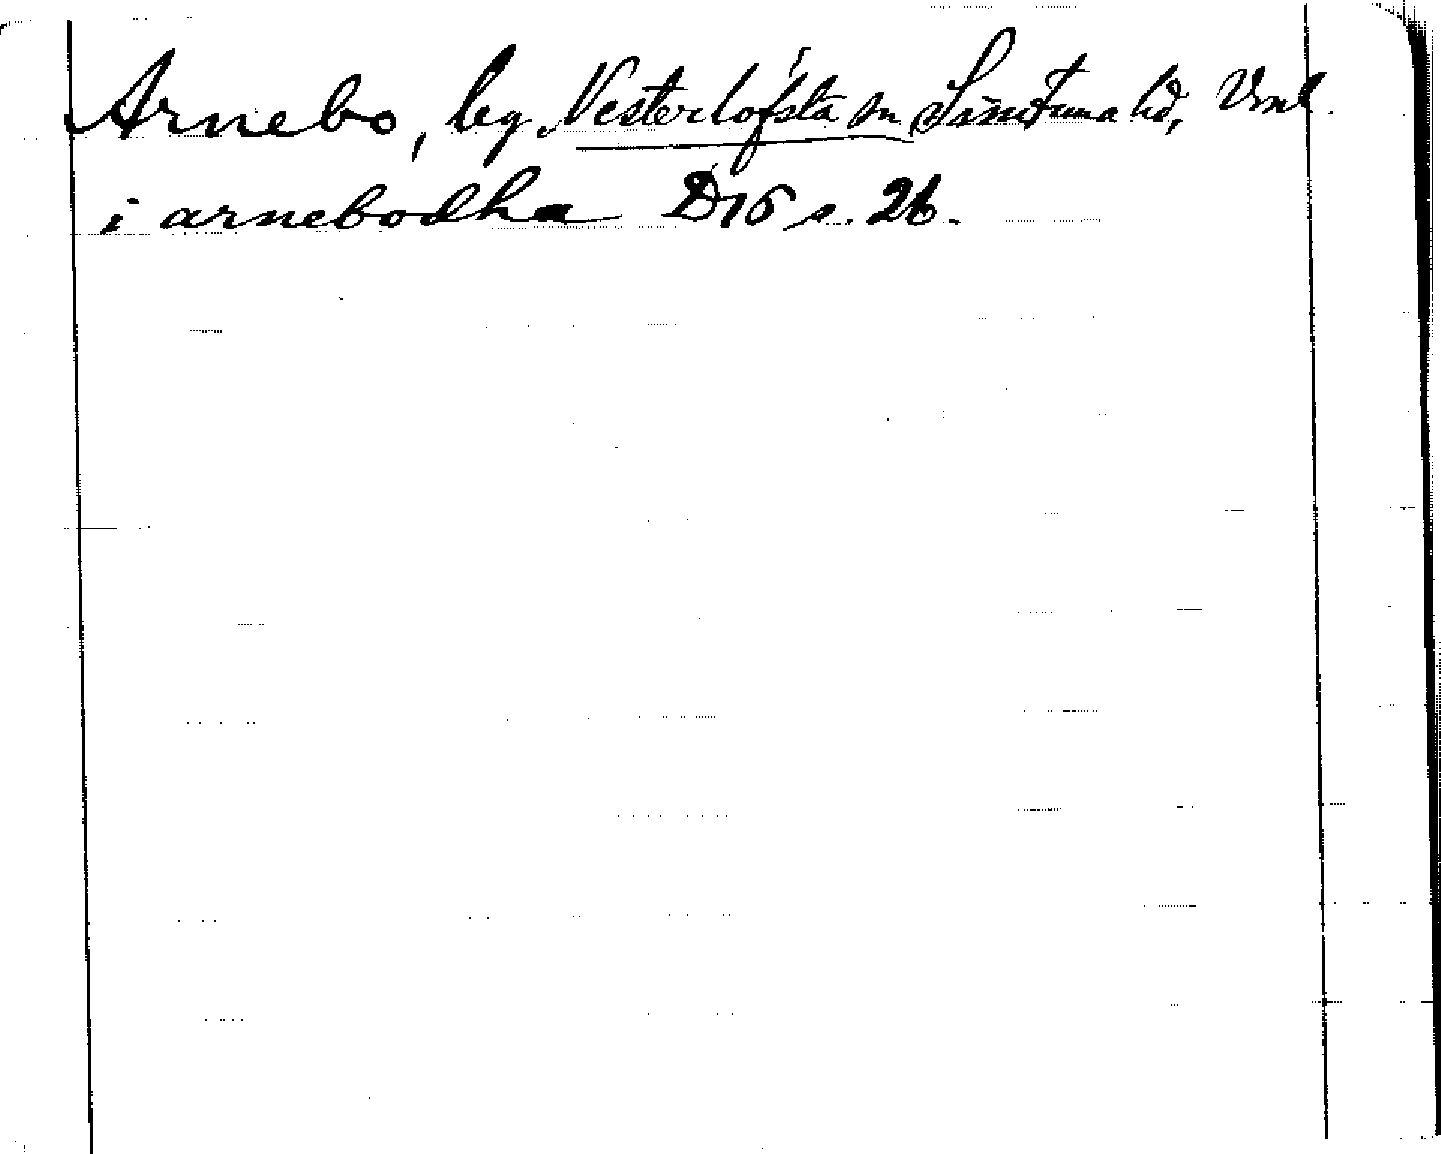 Arnebo, by, Vesterlöfsta sn Simtuna hd, Vml.
i arnebodha D 16 s. 26.